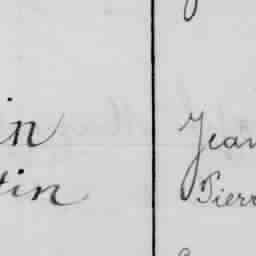 in Jean
tin Pierr